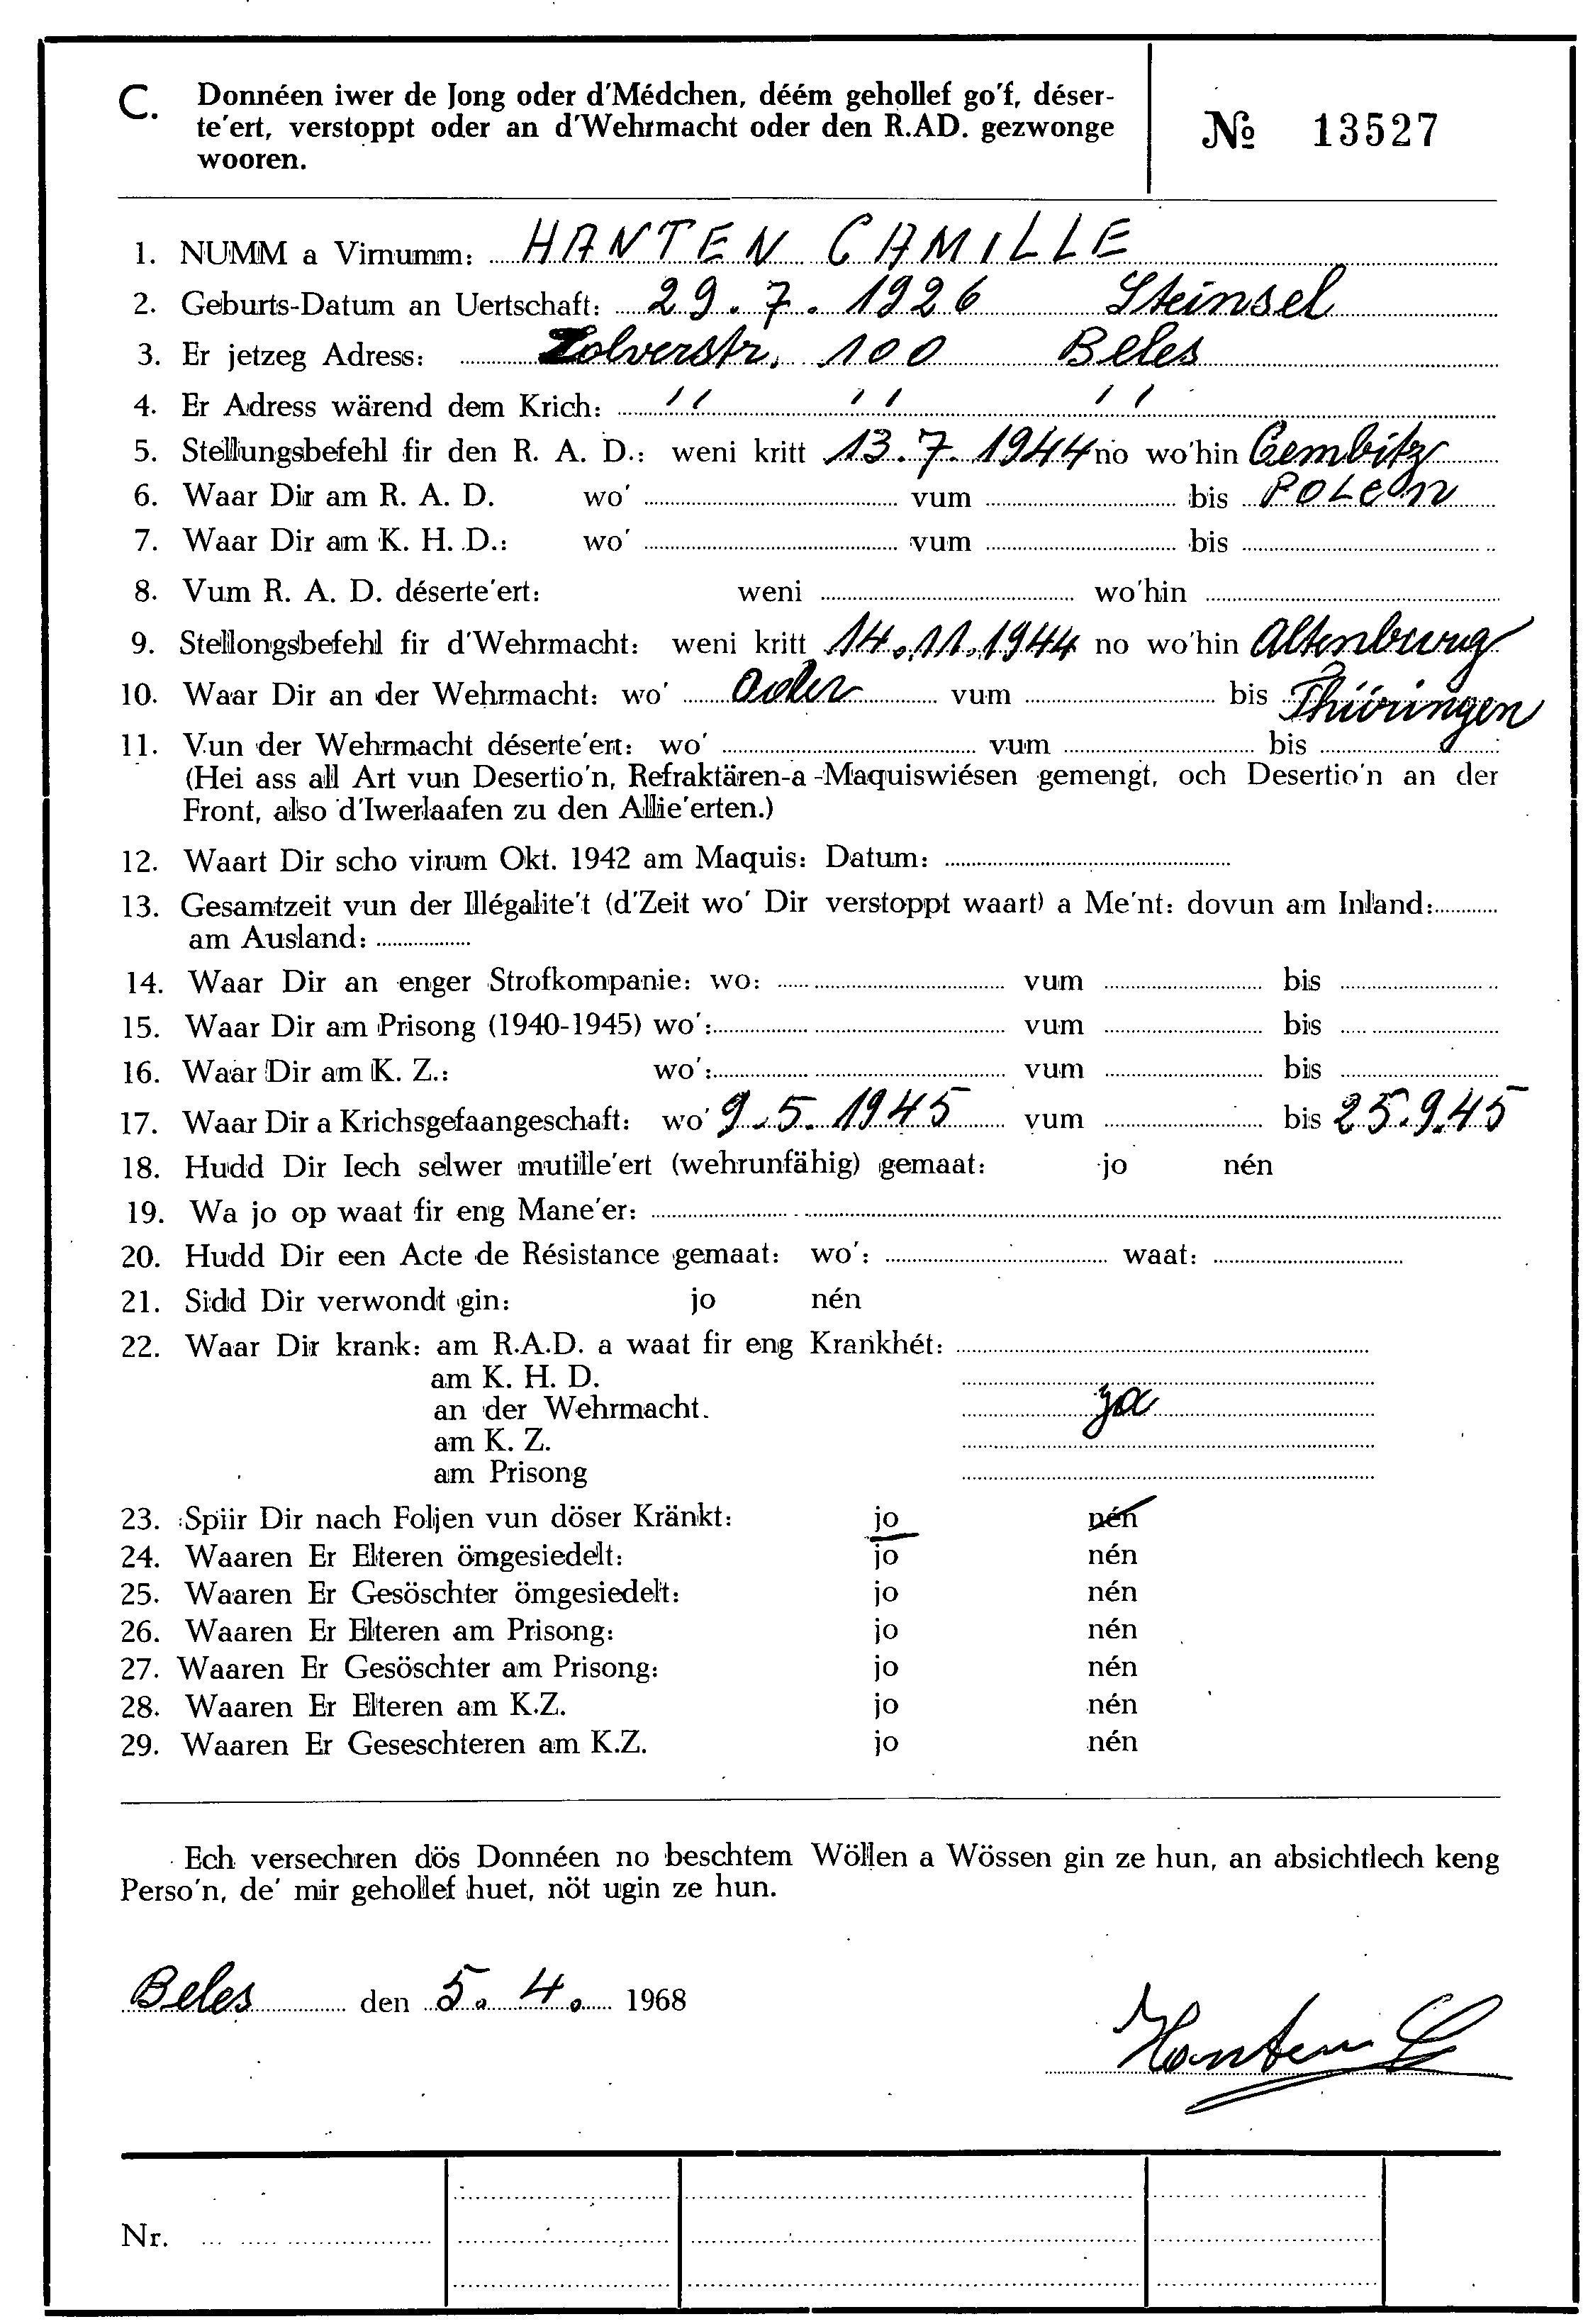 C. Donnéen iwer de Jong oder d'Médchen, déém gehollef go'f, déser-
te'ert, verstoppt oder an d'Wehrmacht oder den R.AD. gezwonge
wooren.
№ 13527
1. NUMM a Virnumm: HANTEN CAMILLE
2. Geburts-Datum an Uertschaft: 29.7.1926 Steinsel
3. Er jetzeg Adress: Zolverstr. 100 Beles
4. Er Adress wärend dem Krich: '' '' ''
5. Stellungsbefehl fir den R. A. D.: weni kritt 13.7.1944 no wo'hin Cembitz
6. Waar Dir am R. A. D. wo' vum bis POLEN
7. Waar Dir am K. H. D.: wo' vum bis
8. Vum R. A. D. déserte'ert: weni wo'hin
9. Stellongsbefehl fir d'Wehrmacht: weni kritt 14.11.1944 no wo'hin Altenburg
10. Waar Dir an der Wehrmacht: wo' Oder vum bis Thüringen
11. Vun der Wehrmacht déserte'ert: wo' vum bis
(Hei ass all Art vun Desertio'n, Refraktären-a-Maquiswiésen gemengt, och Desertio'n an der
Front, also d'Iwerlaafen zu den Allie'erten.)
12. Waart Dir scho virum Okt. 1942 am Maquis: Datum:
13. Gesamtzeit vun der Illégalite't (d'Zeit wo' Dir verstoppt waart) a Me'nt: dovun am Inland:
am Ausland:
14. Waar Dir an enger Strofkompanie: wo: vum bis
15. Waar Dir am Prisong (1940-1945) wo': vum bis
16. Waar Dir am K. Z.: wo': vum bis
17. Waar Dir a Krichsgefaangeschaft: wo' 9.5.1945 vum bis 25.9.45
18. Hudd Dir Iech selwer mutille'ert (wehrunfähig) gemaat: jo nén
19. Wa jo op waat fir eng Mane'er:
20. Hudd Dir een Acte de Résistance gemaat: wo': waat:
21. Sidd Dir verwondt gin: jo nén
22. Waar Dir krank: am R.A.D. a waat fir eng Krankhét:
am K. H. D.
an der Wehrmacht. ja
am K. Z.
am Prisong
23. Spiir Dir nach Foljen vun döser Kränkt: jo nén
24. Waaren Er Elteren ömgesiedelt: jo nén
25. Waaren Er Gesöschter ömgesiedelt: jo nén
26. Waaren Er Elteren am Prisong: jo nén
27. Waaren Er Gesöschter am Prisong: jo nén
28. Waaren Er Elteren am K.Z. jo nén
29. Waaren Er Geseschteren am K.Z. jo nén
Ech versechren dös Donnéen no beschtem Wöllen a Wössen gin ze hun, an absichtlech keng
Perso'n, de' mir gehollef huet, nöt ugin ze hun.
Beles den 5. 4. 1968
Hanten C
Nr.